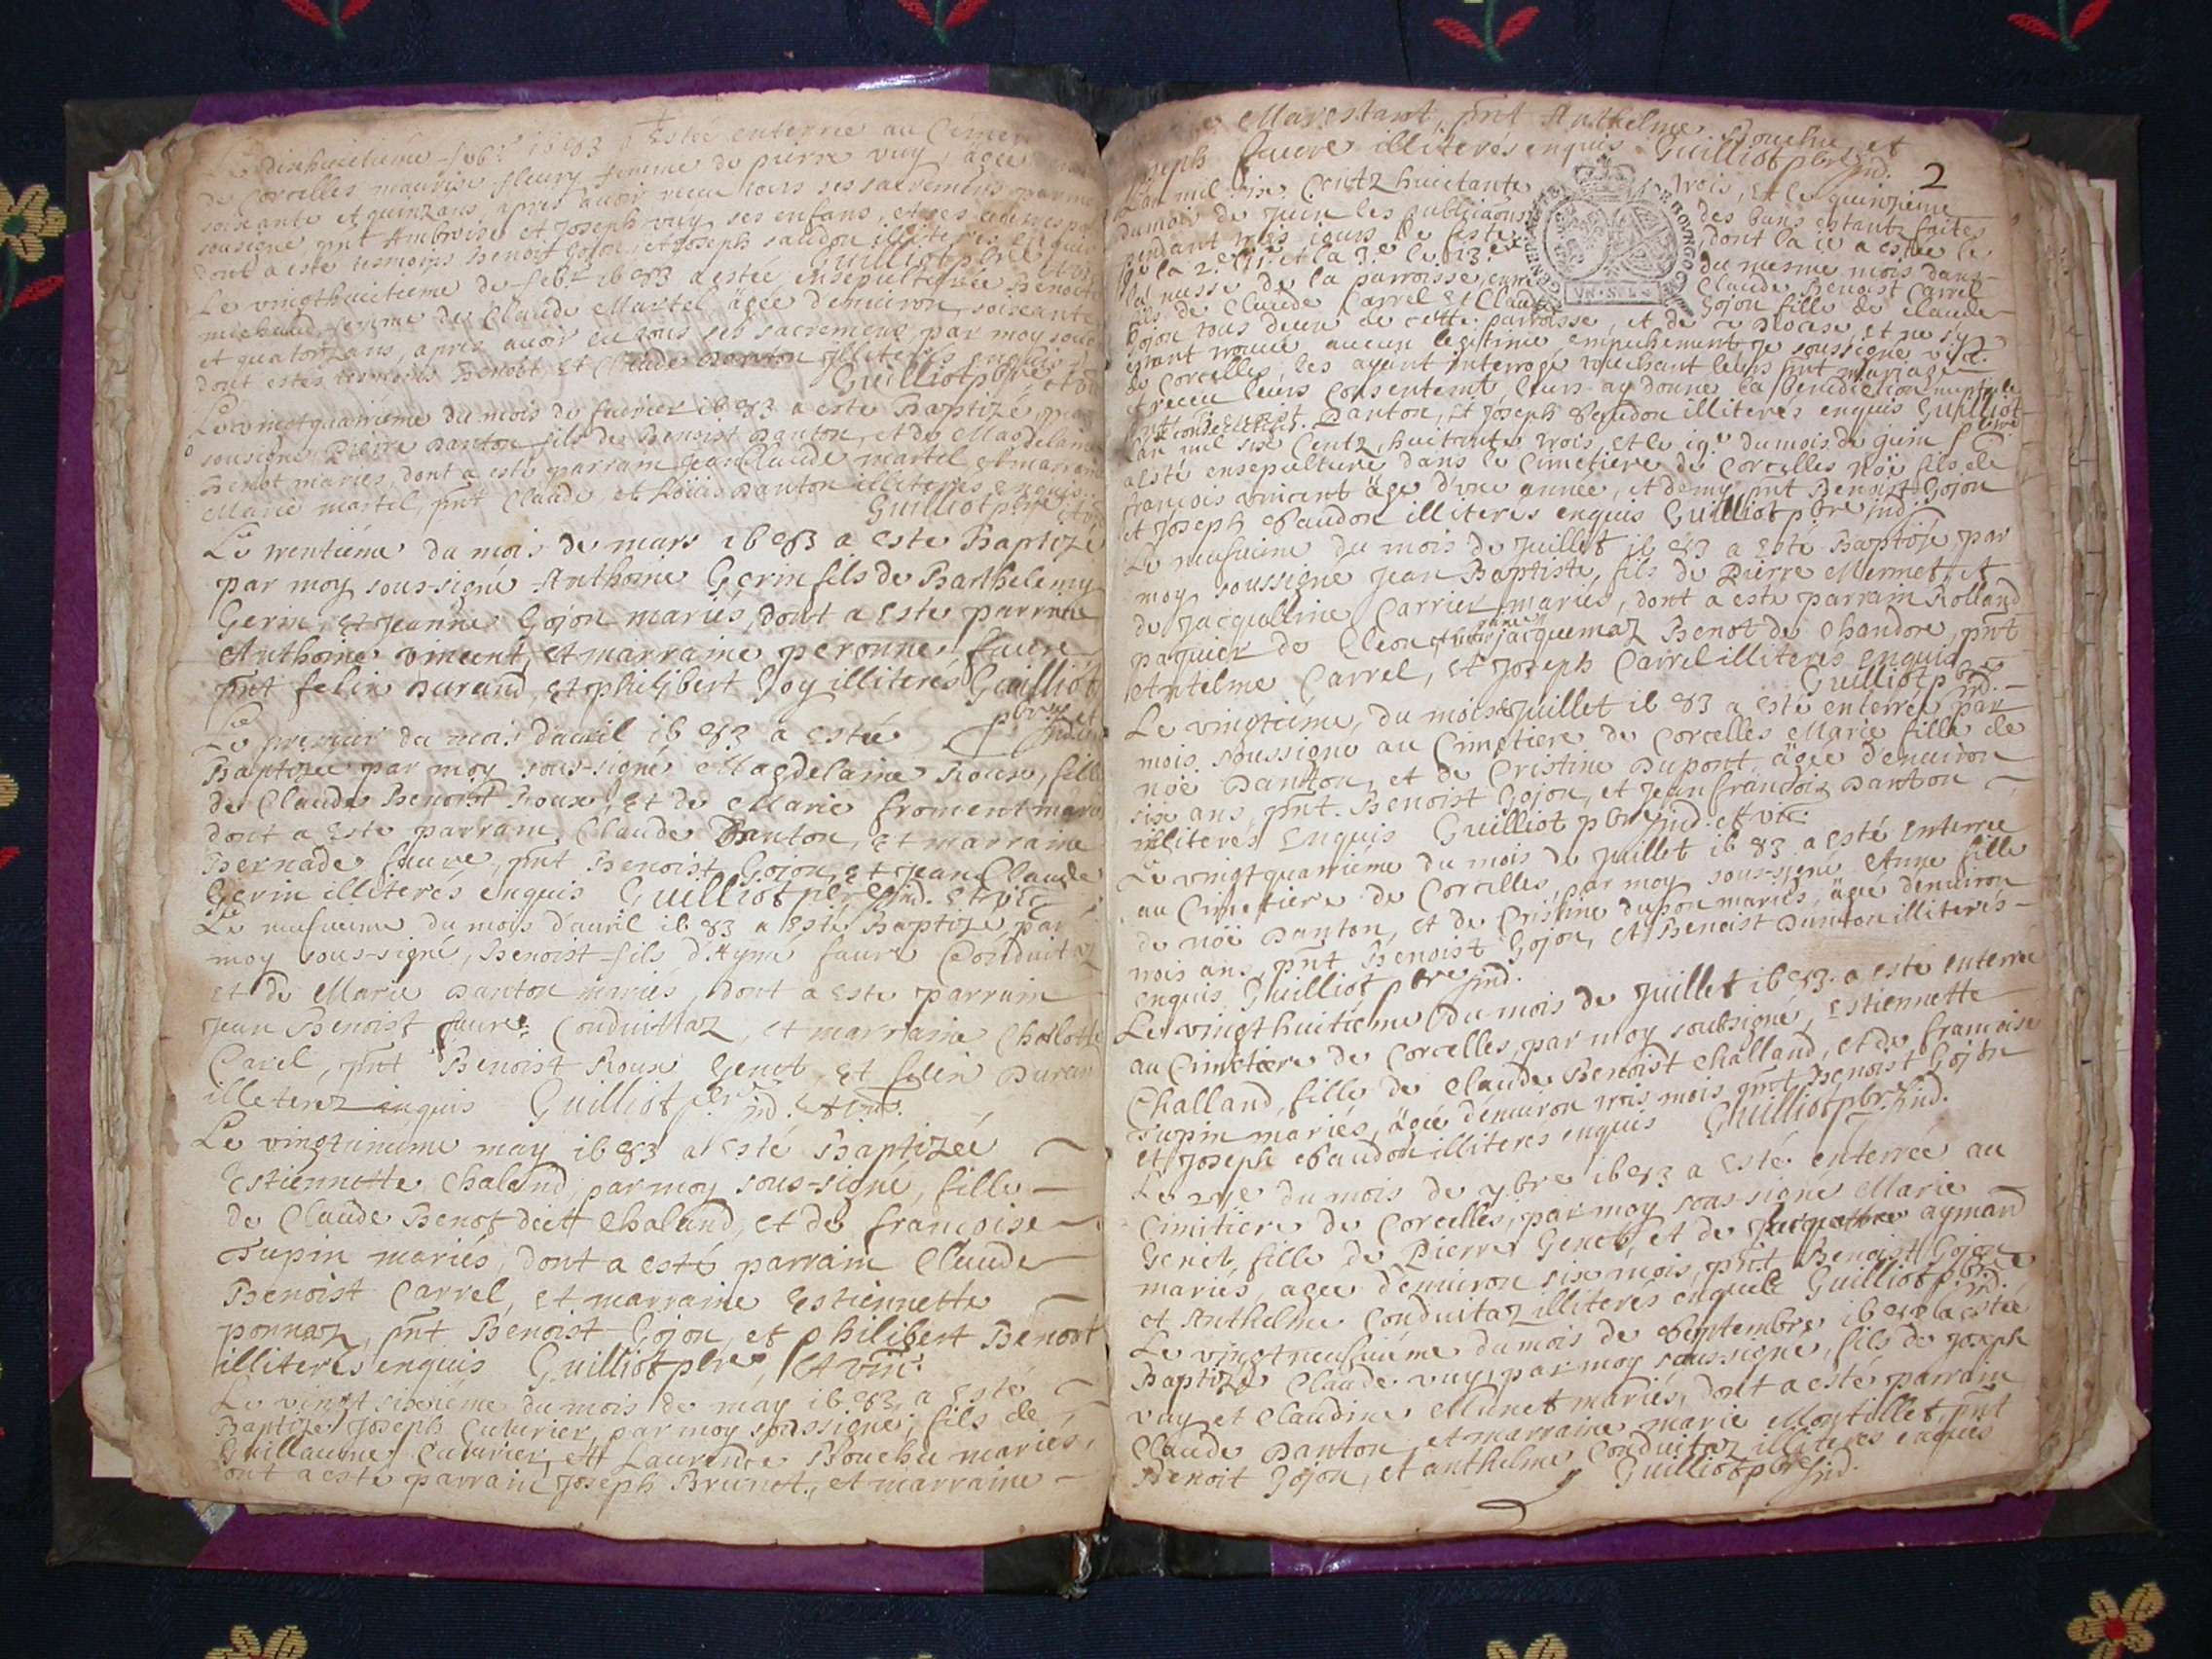 Le dixhuictieme feb.r 1683 Estée enterrée au Cime
de Corcelles maurise fleury femme de pierre vuy, âgée
soixante et quinz ans, apres avoir receu tous ses sacremens par moy
sousigne pnt Ambroise et Joseph vuy ses enfans, et ses
dont a esté tesmoins Benoit Gojon, et Joseph baudon illiteres enquis
Guilliot pbre
Le vingthuictieme de feb.r 1683 a estée ensepulturée Benoite
michaud, femme de Claude Martel âgée denuiron, soixante
et quatorz ans, apres auoir eu tous ses sacremens par moy sous
dont estés termoins Benoist et Claude Danton illiteres enquis
Guilliot pbre
Le vingtquatrieme du mois de feurier 1683 a este Baptizé par
sousigne Pierre Danton fils de Benoist Danton, et de Magdelaine
Benot maries, dont a esté parram Jean Claude martel et marram
Marie martel, pnt Claude et Loüis Danton illiteres enquis
Guilliot pbre
Le trentiéme du mois de mars 1683 a este Baptizé
par moy sous-signé Anthoine Gerin fils de Barthelemy
Gerin, et Jeanne Gojon mariés, dont a Este parrain
Anthoine vincent, et marraine peronne faure
pnt felin Durand, et philibert Joy illiterés Guilliot
pbre
Le premier du mois dauril 1683 a estée
Baptizee par moy sous-signé Magdelaine Roux, fille
de Claude Benoist Roux, et de Marie froment marie
dont a Este parram, Claude Danton, et marraine
Bernade faure, pnt Benoist Gojon, et Jean Claude
Gerin illiterés enquis Guilliot pbre Ind. et vic
Le neufuieme du mois d'auril 1683 a Esté Baptizé par
moy sous-signé, Benoist fils d'Aymé faure Conduitaz
et de Marie Danton mariés, dont a Este parrain
Jean Benoist faure Conduittaz, et marraine Charlotte
Carel, pnt Benoist Roux Genet, et felin Duran
illeterez enquis Guilliot pbr. ind. et vic.
Le vingtuniéme may 1683 a Esté Baptizée
Estiennette Chaland, par moy sous-signé, fille
de Claude Benot deitt Chaland, et de francoise
Tupin mariés, dont a esté parrain Claude
Benoist Carrel, et marraine Estiennette
ponnaz, pnt Benoist Gojon, et philibert Benoot
illiterés enquis Guilliot pbre, et vic.
Le vingt sixieme du mois de may 1683 a Esté
Baptizé Joseph Cuturier, par moy soussigné, fils de
Guillaume Cuturier, et Laurence Bouchu mariés,
dont a esté parrain Joseph Brunet, et marraine
Marestant, pnt Anthelme Bouchu, et
Joseph faure illiterés enquis Guilliot pbre Ind.
2
L'an mil six Centz huictante trois, et le quinzieme
du mois de Juin les publications des bans estantz faites
pendant trois jours de feste, dont la 1e a estée le
la 2.e et la 3.e le 13.e du mesme mois dans
la messe de la parroisse, entre Claude Benoist Carrel
fils de Claude Carrel et Claud Gojon fille de Claude
Gojon tous deux de cette parroisse, et de ce diocese, et ne s'y
estant trouué aucun legitime empechement je soussigné vic.
de Corcelles, les ayant interrogé touchant leurs pnt mariage
et receu leurs consentemt, leurs ay donné la benediction nuptiale
pnt Benoist Danton, et Joseph Baudon illiterés enquis Guilliot
L'an mil six Centz, huictante trois, et le 19.e du mois de juin
a esté ensepulturé dans le Cimetiere de Corcelles noë fils de
francois vincent âge d'vne année, et demy pnt Benoist Gojon
et Joseph Baudon illiteres enquis Guilliot pbre Ind.
Le neufuieme du mois de Juillet 1683 a Esté Baptisé par
moy soussigné Jean Baptiste, fils de Pierre Mermet, et
de Jacqueline Carrier mariés, dont a este parram Rolland
paquier de Cleon, et jacquemaz Benot de Chandore, pnt
Antelme Carrel, et Joseph Carrel illiteres enquis
Guilliot pbre Ind.
Le vingtieme, du mois de Juillet 1683 a esté enterrée par
mois soussigne au Cimetiere de Corcelles Marie fille de
noë Danton, et de Cristine Dupont âgée denuiron
six ans, pnt. Benoist Gojon, et Jean francois Danton
illiteres Enquis Guilliot pbre Ind. et vic.
Le vingtquatrieme du mois de Juillet 1683 a esté Enterrée
au Cimetiere de Corcelles, par moy sous-signé Anne fille
de noë Danton, et de Cristine dupon mariés, âgée denuiron
trois ans, pnt Benoist Gojon, et Benoist Danton illiterés
enquis Guilliot pbre Ind.
Le vingt huitieme du mois de Juillet 1683. a este enterrée
au Cimetiere de Corcelles, par moy soubsigné, Estiennette
Challand, fille de Claude Benoist Challand, et de francoise
Tupin mariés, âgée denuiron trois mois pnt Benoist Gojon
et Joseph Baudon illiterés enquis Guilliot pbre Ind.
Le du mois de 7bre 1683 a Esté enterrée au
Cimitiere de Corcelles, par moy sous-signé Marie
Genet, fille de Pierre Genet, et de aymard
mariés, agée denuiron six mois, pnt Benoist Gojon
et Anthelme Conduitaz illiterés enquis Guilliot pbre Ind.
Le vingtneufuiéme du mois de septembre 1683 a estée
Baptizé Claude vuy, par moy sous-signé, fils de Joseph
vuy et Claudine Munet mariés, dont a esté parrain
Claude Danton, et marraine marie Montillet, pnt
Benoit Gojon, et anthelme Conduitaz illiteres enquis
Guilliot pbre Ind.